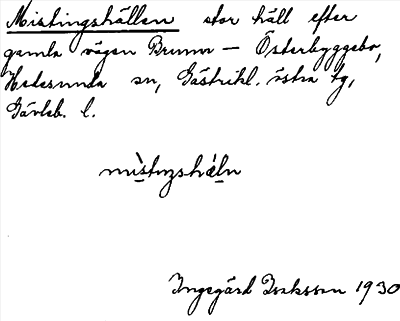 Mistingshällen stor häll efter
gamla vägen Brunn – Österbyggebo,
Hedesunda sn, Gästrikl. östra tg,
Gävleb. l.
mìstıŋshä̀ln
Ingegärd Isaksson 1930